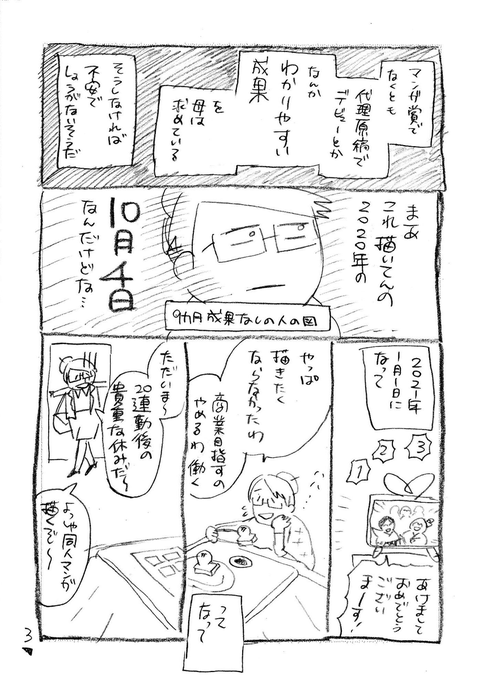 マンガ賞で
なくとも
代理原稿で
デビューとか
なんか
わかりやすい
成果
を
母は
求めている
そうしなければ
不安で
しょうがないそうだ
まあ
これ描いてんの
2020年の
10月4日
なんだけどな…
9カ月成果なしの人の図
2021年
1月1日に
なって
3
2
1
あけまして
おめでとう
ござい
まーす!
やっぱ
描きたく
ならなかったわ
商業目指すの
やめるわ働く
って
なって
ただいま〜
20連勤後の
貴重な休みだ〜
よっしゃ同人マンガ
描くぞ〜
3